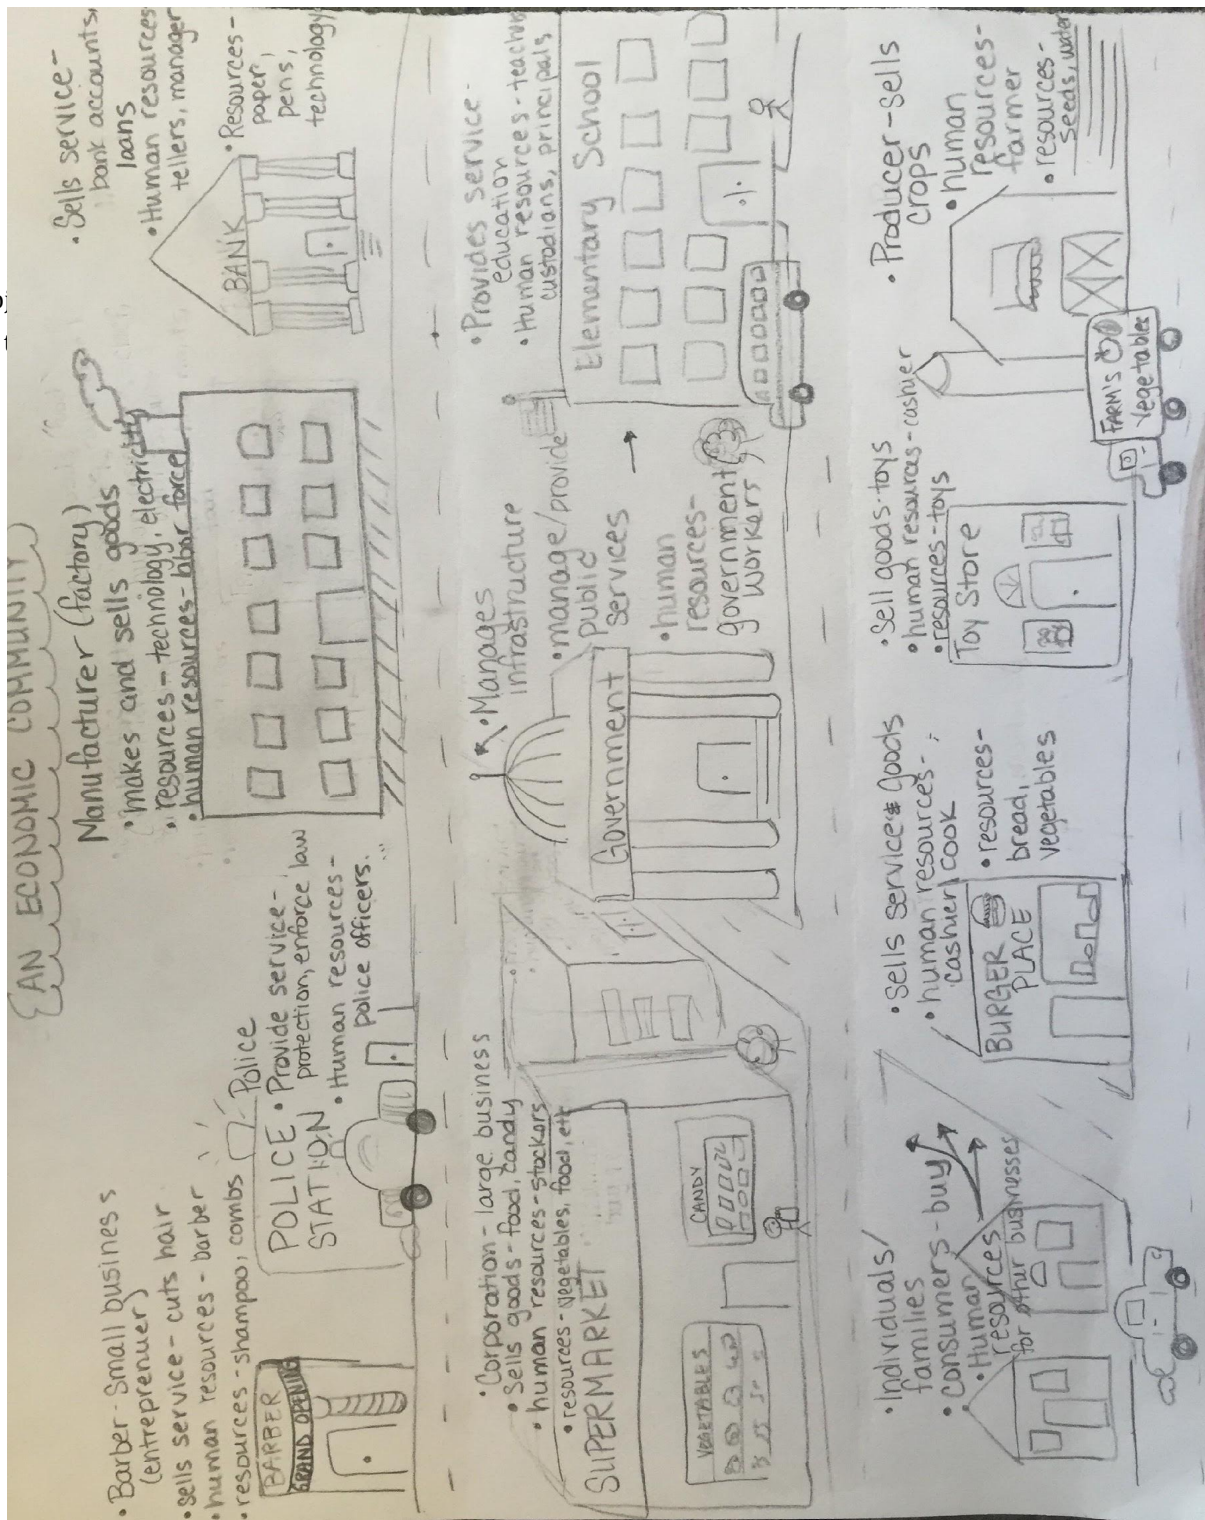 AN ECONOMIC COMMUNITY
• Barber - Small business
(entreprenuer)
• sells service - cuts hair
• human resources - barber
• resources - shampoo, combs
BARBER
GRAND OPENING
Police
POLICE
STATION
• Provide service -
protection, enforce law
• Human resources -
police officers.
Manufacturer (factory)
• makes and sells goods
• resources - technology, electricity
• human resources - labor force
• Sells service -
bank accounts,
loans
• Human resources
tellers, manager
• Resources -
paper,
pens,
technology
BANK
• Corporation - large business
• Sells goods - food, candy
• human resources - stockers
• resources - vegetables, food, etc
SUPERMARKET
VEGETABLES
CANDY
• Manages
infrastructure
• manage/provide
public
services
• human
resources -
government
workers
Government
• Provides service -
education
• Human resources - teachers
custodians, principals
Elementary School
• Individuals/
families
• Consumers - buy
• Human
resources
for other businesses
• Sells service & Goods
• human resources -
cashier, cook
• resources -
bread,
vegetables
BURGER
PLACE
• Sell goods - toys
• human resources - cashier
• resources - toys
Toy Store
• Producer - sells
crops
• human
resources -
farmer
• resources -
seeds, water
FARM'S
Vegetables